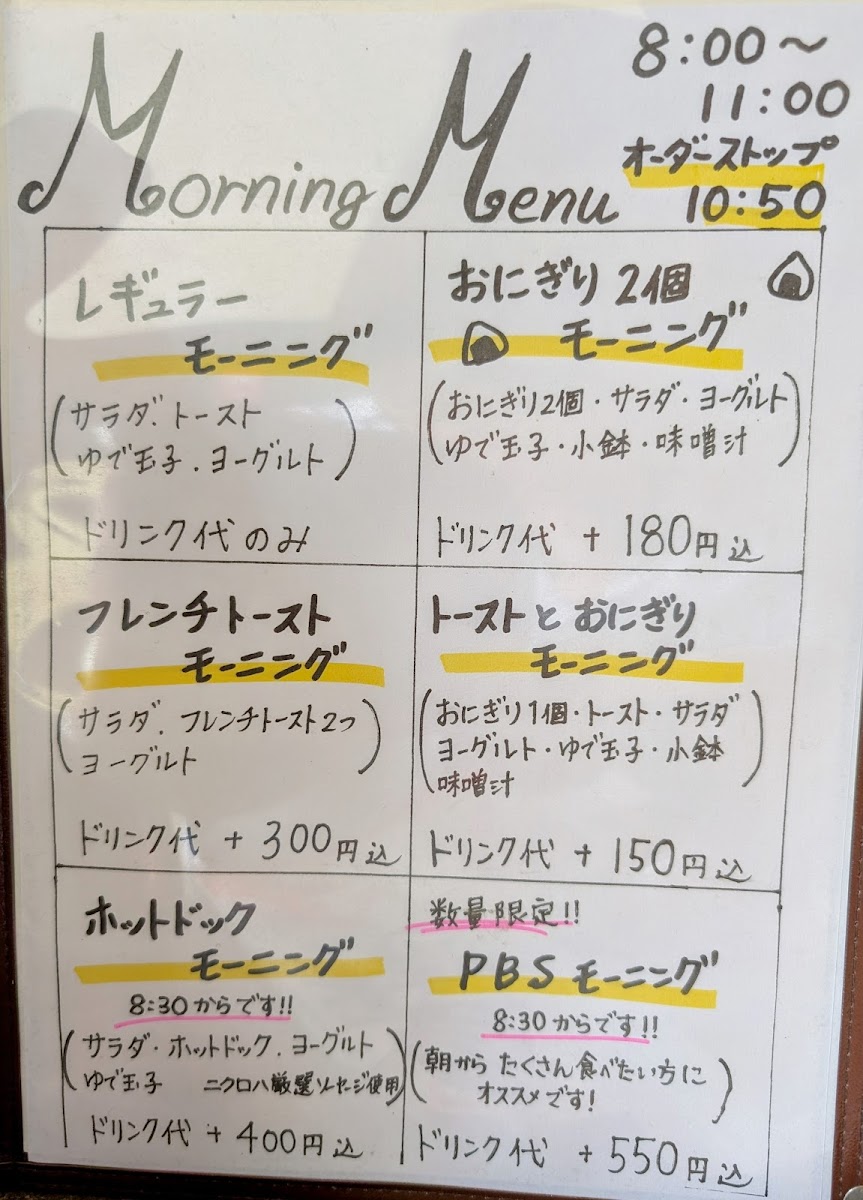 Morning Menu
8:00～
11:00
オーダーストップ
10:50
レギュラー
モーニング
(サラダ.トースト
ゆで玉子.ヨーグルト)
ドリンク代のみ
おにぎり2個
モーニング
(おにぎり2個・サラダ・ヨーグルト
ゆで玉子・小鉢・味噌汁)
ドリンク代 + 180円込
フレンチトースト
モーニング
(サラダ.フレンチトースト2つ
ヨーグルト)
ドリンク代 + 300円込
トーストとおにぎり
モーニング
(おにぎり1個・トースト・サラダ
ヨーグルト・ゆで玉子・小鉢
味噌汁)
ドリンク代 + 150円込
ホットドック
モーニング
8:30からです!!
(サラダ・ホットドック.ヨーグルト
ゆで玉子 ニクロハ厳選ソーセージ使用)
ドリンク代 + 400円込
数量限定!!
PBSモーニング
8:30からです!!
(朝から たくさん食べたい方に
オススメです!)
ドリンク代 + 550円込